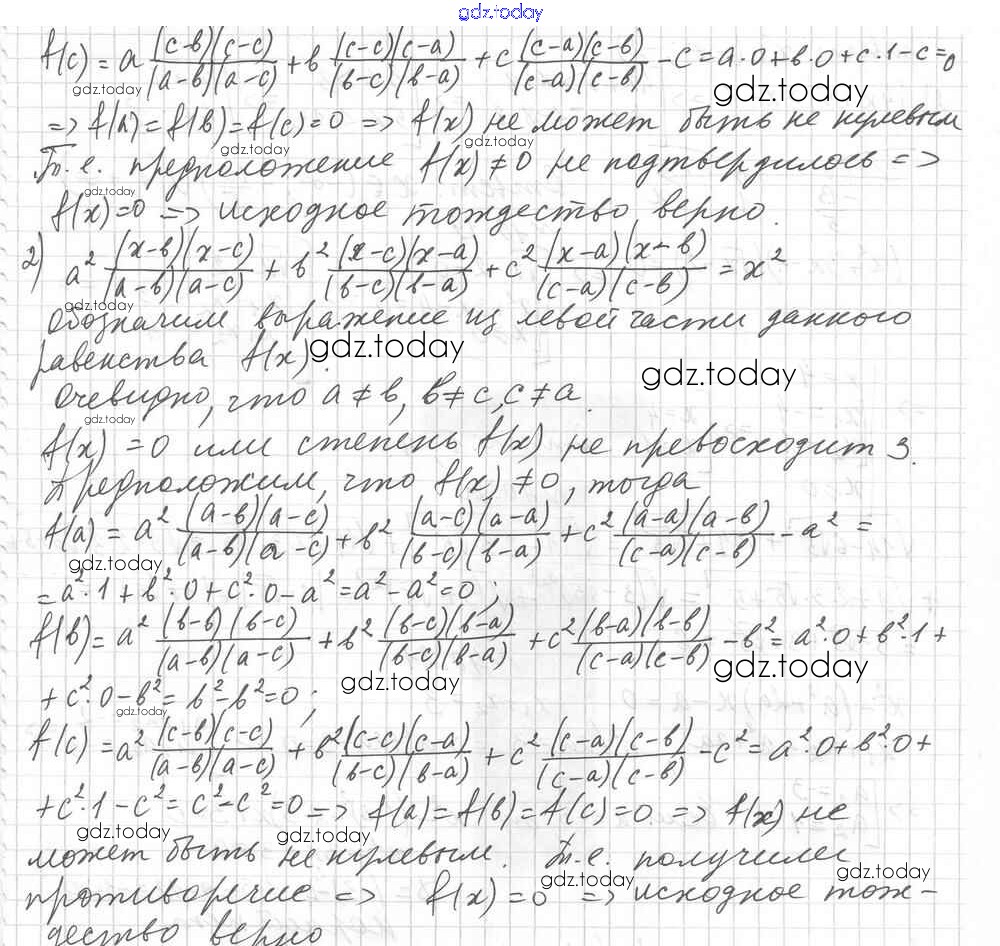 gdz.today
f(c) = a (c-в)(c-c)/(a-в)(a-c) + в (c-c)(c-a)/(в-c)(в-a) + c (c-a)(c-в)/(c-a)(c-в) - c = a·0+в·0+c·1-c=0
gdz.today gdz.today
=> f(a)=f(в)=f(c)=0 => f(x) не может быть не нулевым
gdz.today gdz.today
Т.е. предположение f(x)≠0 не подтвердилось =>
gdz.today
f(x)=0 => исходное тождество верно.
2) a² (x-в)(x-c)/(a-в)(a-c) + в² (x-c)(x-a)/(в-c)(в-a) + c² (x-a)(x-в)/(c-a)(c-в) = x²
gdz.today
Обозначим выражение из левой части данного
равенства f(x).
gdz.today gdz.today
Очевидно, что a≠в, в≠c, c≠a.
gdz.today
f(x)=0 или степень f(x) не превосходит 3.
Предположим, что f(x)≠0, тогда
f(a) = a² (a-в)(a-c)/(a-в)(a-c) + в² (a-c)(a-a)/(в-c)(в-a) + c² (a-a)(a-в)/(c-a)(c-в) - a² =
gdz.today
= a²·1+в²·0+c²·0-a²=a²-a²=0;
f(в)= a² (в-в)(в-c)/(a-в)(a-c) + в² (в-c)(в-a)/(в-c)(в-a) + c² (в-a)(в-в)/(c-a)(c-в) - в² = a²·0+в²·1+
gdz.today gdz.today
+c²·0-в²=в²-в²=0;
gdz.today
f(c) = a² (c-в)(c-c)/(a-в)(a-c) + в² (c-c)(c-a)/(в-c)(в-a) + c² (c-a)(c-в)/(c-a)(c-в) - c² = a²·0+в²·0+
+c²·1-c²=c²-c²=0 => f(a)=f(в)=f(c)=0. => f(x) не
gdz.today gdz.today
может быть не нулевым. Т.е. получили
gdz.today gdz.today
противоречие => f(x)=0 => исходное тож-
дество верно